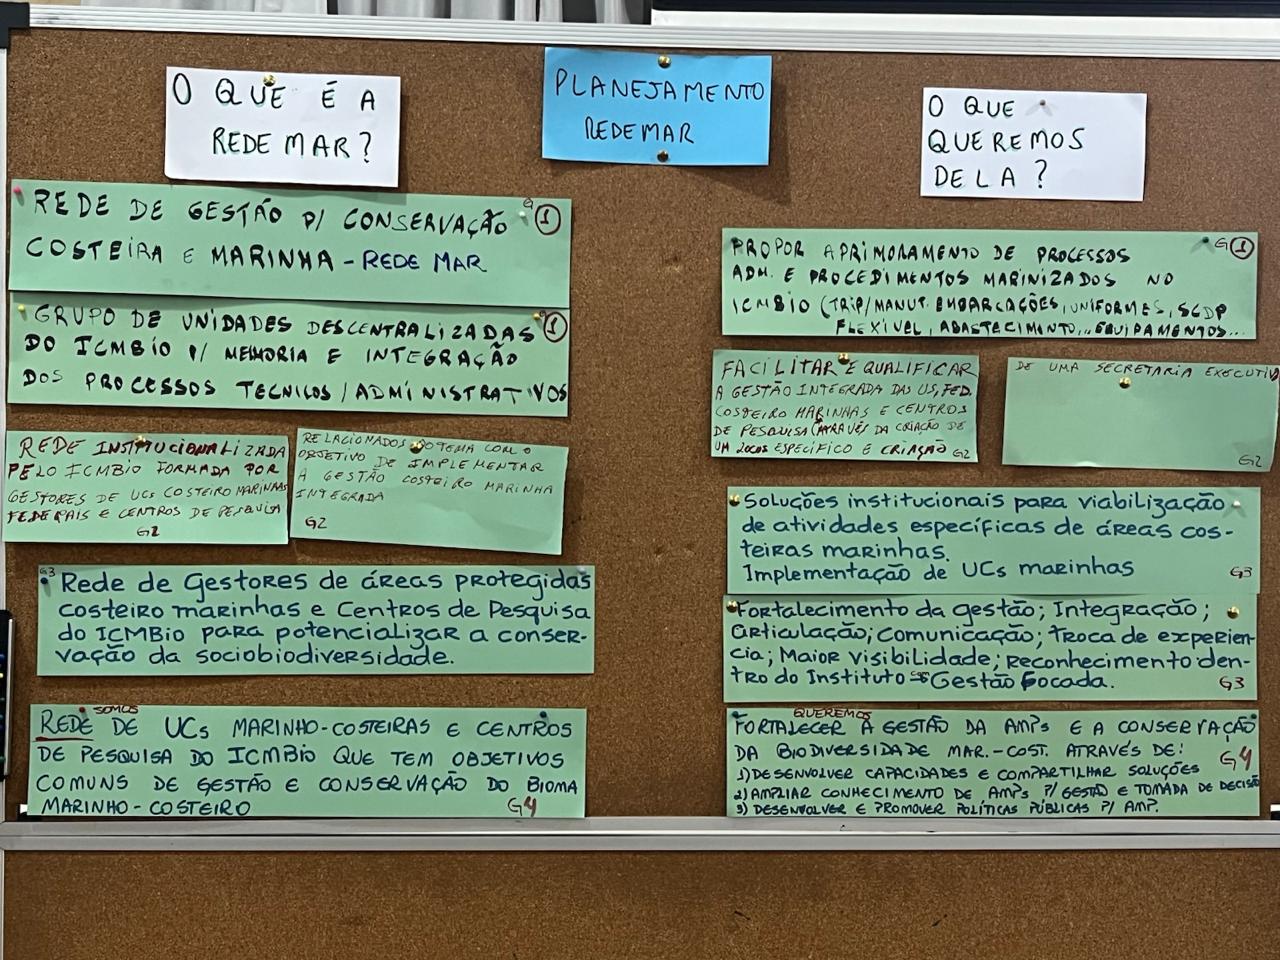 PLANEJAMENTO
REDEMAR
O QUE É A
REDE MAR?
REDE DE GESTÃO P/ CONSERVAÇÃO G1
COSTEIRA E MARINHA - REDE MAR
GRUPO DE UNIDADES DESCENTRALIZADAS G1
DO ICMBIO P/ MELHORIA E INTEGRAÇÃO
DOS PROCESSOS TECNICOS / ADMINISTRATIVOS
REDE INSTITUCIONALIZADA
PELO ICMBIO FORMADA POR
GESTORES DE UCs COSTEIRO MARINHAS
FEDERAIS E CENTROS DE PESQUISA
G2
RELACIONADOS AO TEMA COM O
OBJETIVO DE IMPLEMENTAR
A GESTÃO COSTEIRO MARINHA
INTEGRADA
G2
G3
Rede de Gestores de áreas protegidas
costeiro marinhas e Centros de Pesquisa
do ICMBio para potencializar a conser-
vação da sociobiodiversidade.
SOMOS
REDE DE UCs MARINHO-COSTEIRAS E CENTROS
DE PESQUISA DO ICMBio QUE TEM OBJETIVOS
COMUNS DE GESTÃO E CONSERVAÇÃO DO BIOMA
MARINHO-COSTEIRO G4
O QUE
QUEREMOS
DELA?
PROPOR APRIMORAMENTO DE PROCESSOS G1
ADM. E PROCEDIMENTOS MARINIZADOS NO
ICMBIO (TRIP/MANUT. EMBARCAÇÕES, UNIFORMES, SCDP
FLEXÍVEL, ABASTECIMENTO, EQUIPAMENTOS...
FACILITAR E QUALIFICAR
A GESTÃO INTEGRADA DAS US, FED.
COSTEIRO MARINHAS E CENTROS
DE PESQUISA (ATRAVÉS DA CRIAÇÃO DE
UM LOCUS ESPECÍFICO E CRIAÇÃO G2
DE UMA SECRETARIA EXECUTIVA
G2
Soluções institucionais para viabilização
de atividades específicas de áreas cos-
teiras marinhas.
Implementação de UCs marinhas G3
Fortalecimento da gestão; Integração;
articulação; comunicação; troca de experien-
cia; Maior visibilidade; reconhecimento den-
tro do Instituto Gestão Focada. G3
QUEREMOS
FORTALECER A GESTÃO DA AMPs E A CONSERVAÇÃO
DA BIODIVERSIDADE MAR.-COST. ATRAVÉS DE: G4
1) DESENVOLVER CAPACIDADES E COMPARTILHAR SOLUÇÕES
2) AMPLIAR CONHECIMENTO DE AMPs P/ GESTÃO E TOMADA DE DECISÃO
3) DESENVOLVER E PROMOVER POLÍTICAS PÚBLICAS P/ AMP.